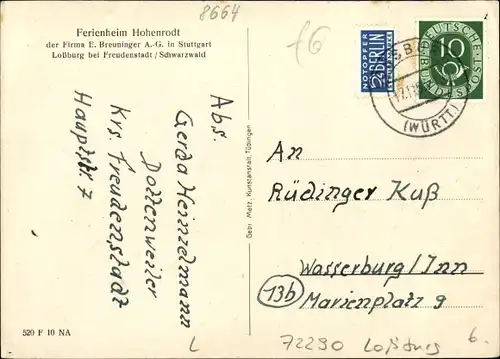 8664
Ferienheim Hohenrodt
der Firma E. Breuninger A.-G. in Stuttgart
Loßburg bei Freudenstadt / Schwarzwald
f6
NOTOPFER
2 BERLIN
STEUERMARKE
DEUTSCHE
BUNDESPOST
10
(WÜRTT)
Abs.
Gerda Heinzelmann
Dottenweiler
Krs. Freudenstadt
Hauptstr. 7
Gebr. Metz, Kunstanstalt, Tübingen
An
Rüdinger Kuß
Wasserburg/Inn
13b
Marienplatz 9
520 F 10 NA
L
72290 Loßburg
6.